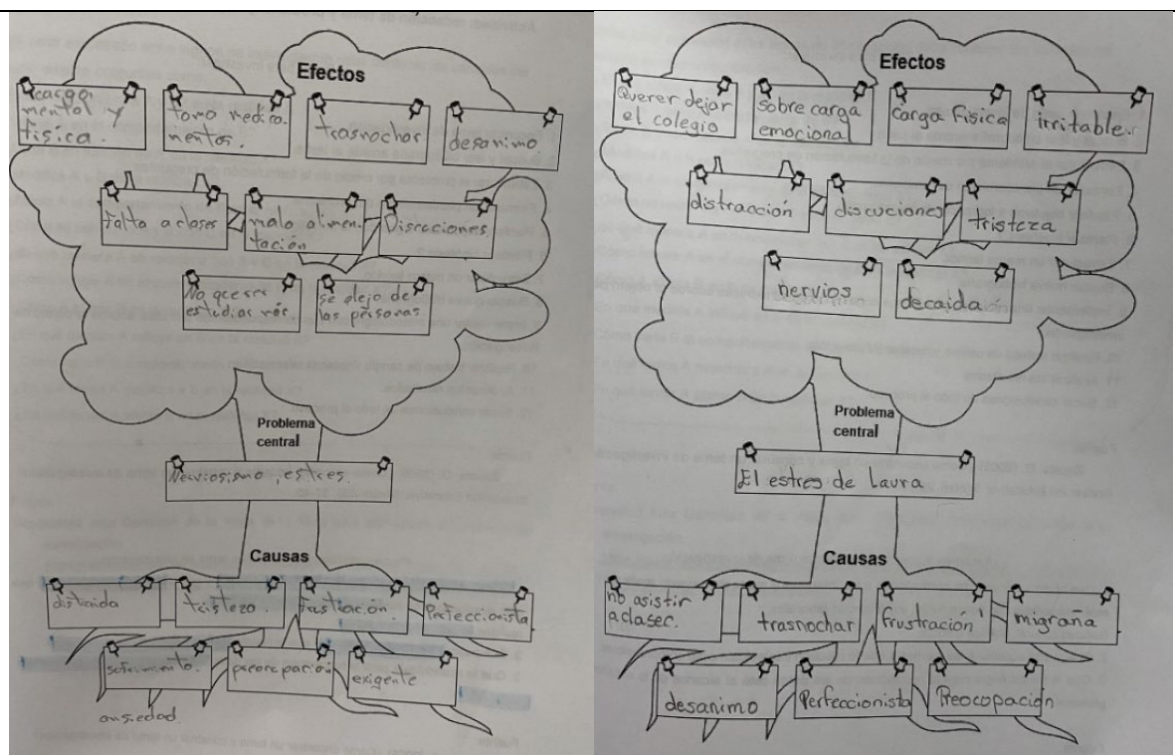 Efectos
carga
mental y
física.
tomo medica-
mentos.
trasnochar
desanimo.
falta a clases
mala alimen-
tación
Discuciones
No querer
estudiar más.
se alejo de
las personas.
Problema
central
Nerviosismo, estres.
Causas
distraida
tristeza.
frustración.
Perfeccionista
sufrimiento.
preocupación
exigente
ansiedad.
Efectos
Querer dejar
el colegio
sobre carga
emocional
carga Física
irritable.
distracción
discuciones
tristeza
nervios
decaida
Problema
central
El estres de Laura
Causas
no asistir
a clases.
trasnochar
frustración
migraña
desanimo
Perfeccionista
Preocopación